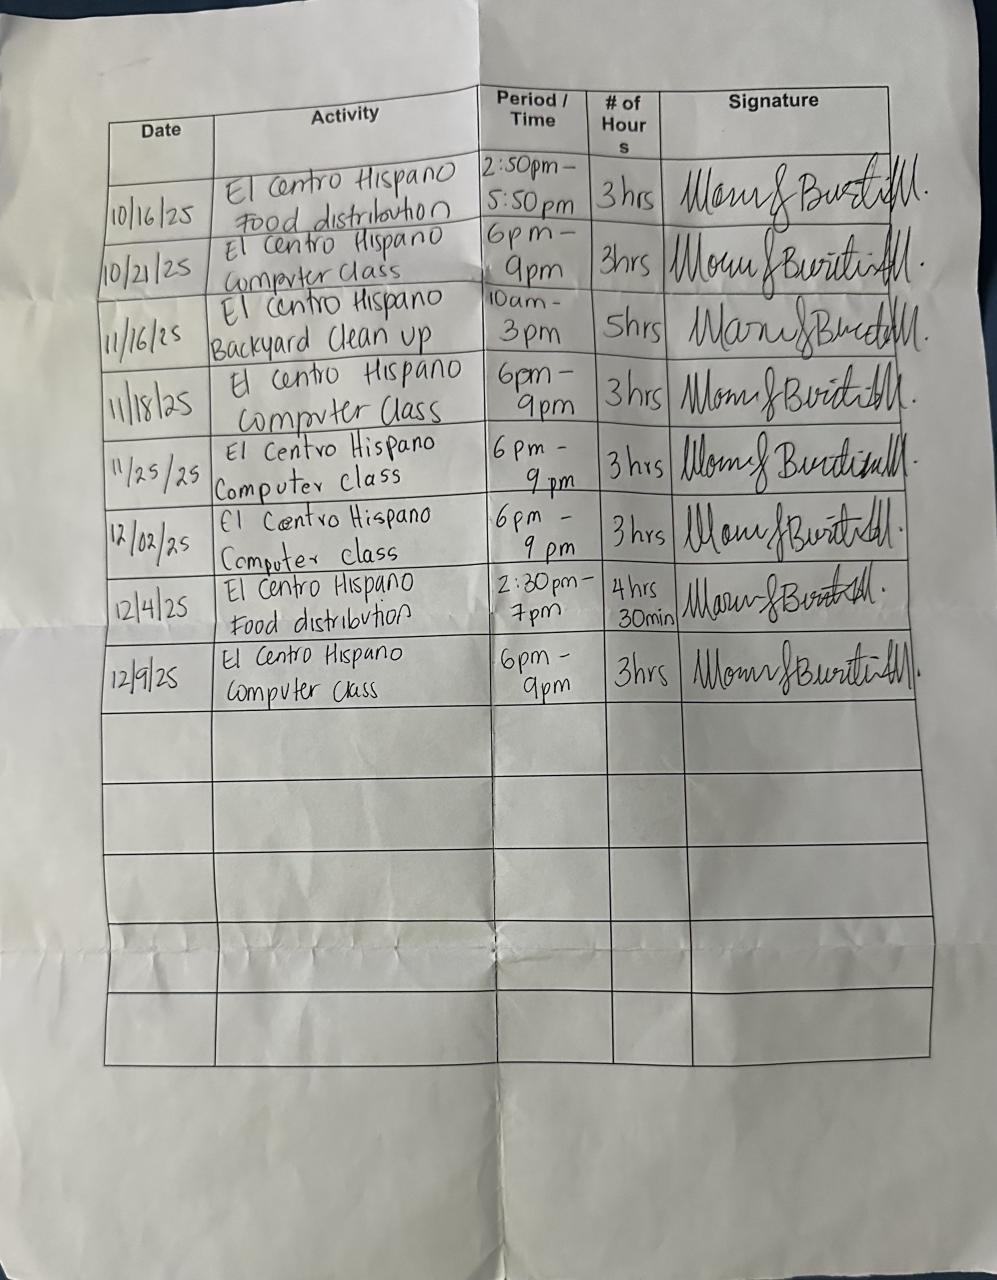 Date Activity Period / Time # of Hour s Signature
10/16/25 El Centro Hispano Food distribution 2:50pm- 5:50pm 3hrs
10/21/25 El Centro Hispano Computer Class 6pm- 9pm 3hrs
11/16/25 El Centro Hispano Backyard Clean up 10am- 3pm 5hrs
11/18/25 El Centro Hispano Computer Class 6pm- 9pm 3hrs
11/25/25 El Centro Hispano Computer class 6pm- 9pm 3hrs
12/02/25 El Centro Hispano Computer class 6pm- 9pm 3hrs
12/4/25 El Centro Hispano Food distribution 2:30pm- 7pm 4hrs 30min
12/9/25 El Centro Hispano Computer Class 6pm- 9pm 3hrs